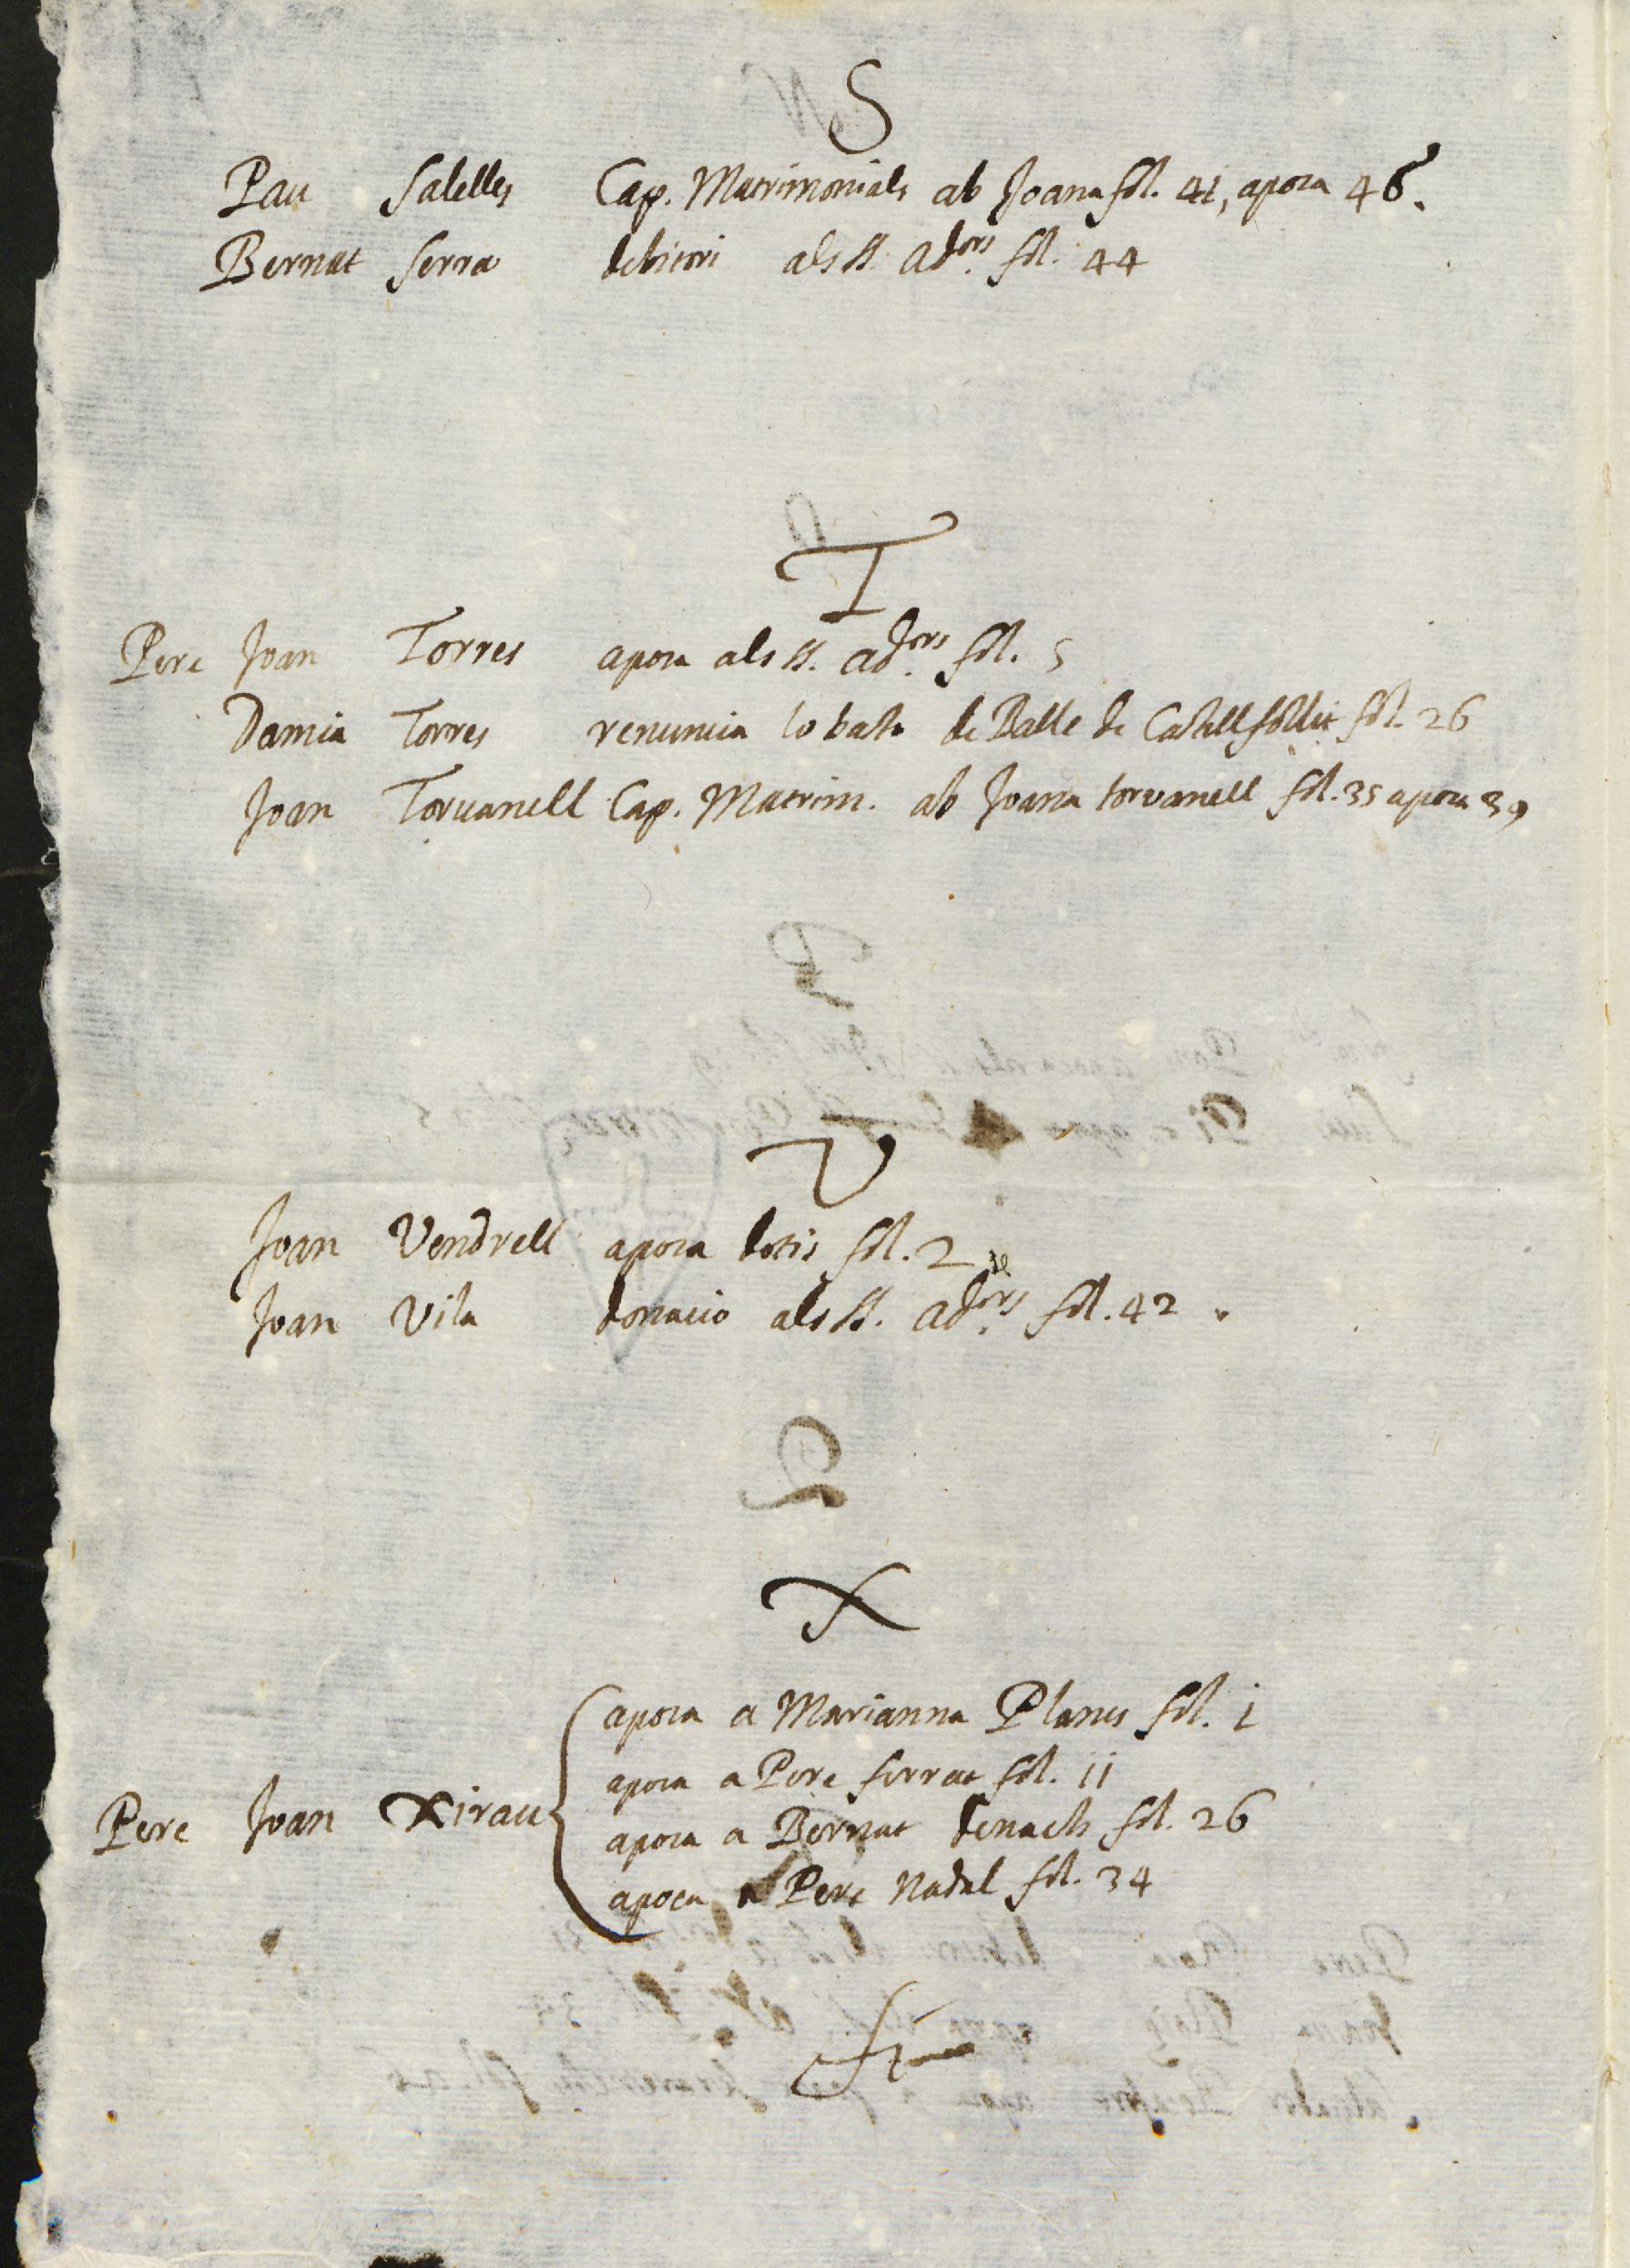 S
Pau Salelles Cap. Matrimonials ab Joana fol. 41, apoca 46.
Bernat Serra debitori als ss. adors fol. 44
T
Pere Joan Torres apoca als ss. adors fol. 5
Damia Torres renuncia lo basto de Balle de Castellfollit fol. 26
Joan Toruanell Cap. Matrim. ab Joana toruanell fol. 35 apoca 39
V
Joan Vendrell apoca dotis fol. 2
Joan Vila donacio als ss. adors fol. 42
X
apoca a Marianna Planes fol. i
apoca a Pere serrat fol. ii
Pere Joan Xirau
apoca a Bernat denach fol. 26
apoca a Pere Nadal fol. 34